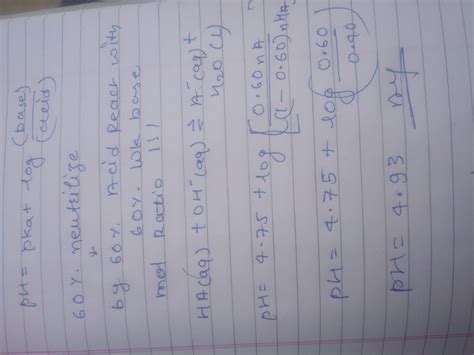 pH = pka + log (base)/(acid)
60%. neutrilize
by 60%. Acid React with
60%. wk base
mol Ratio 1:1
HA(aq) + OH⁻(aq) ⇌ A⁻(aq) +
H₂O (l)
pH = 4.75 + log [0.60nA/(1-0.60)nHA]
pH = 4.75 + log (0.60/0.40)
pH = 4.93